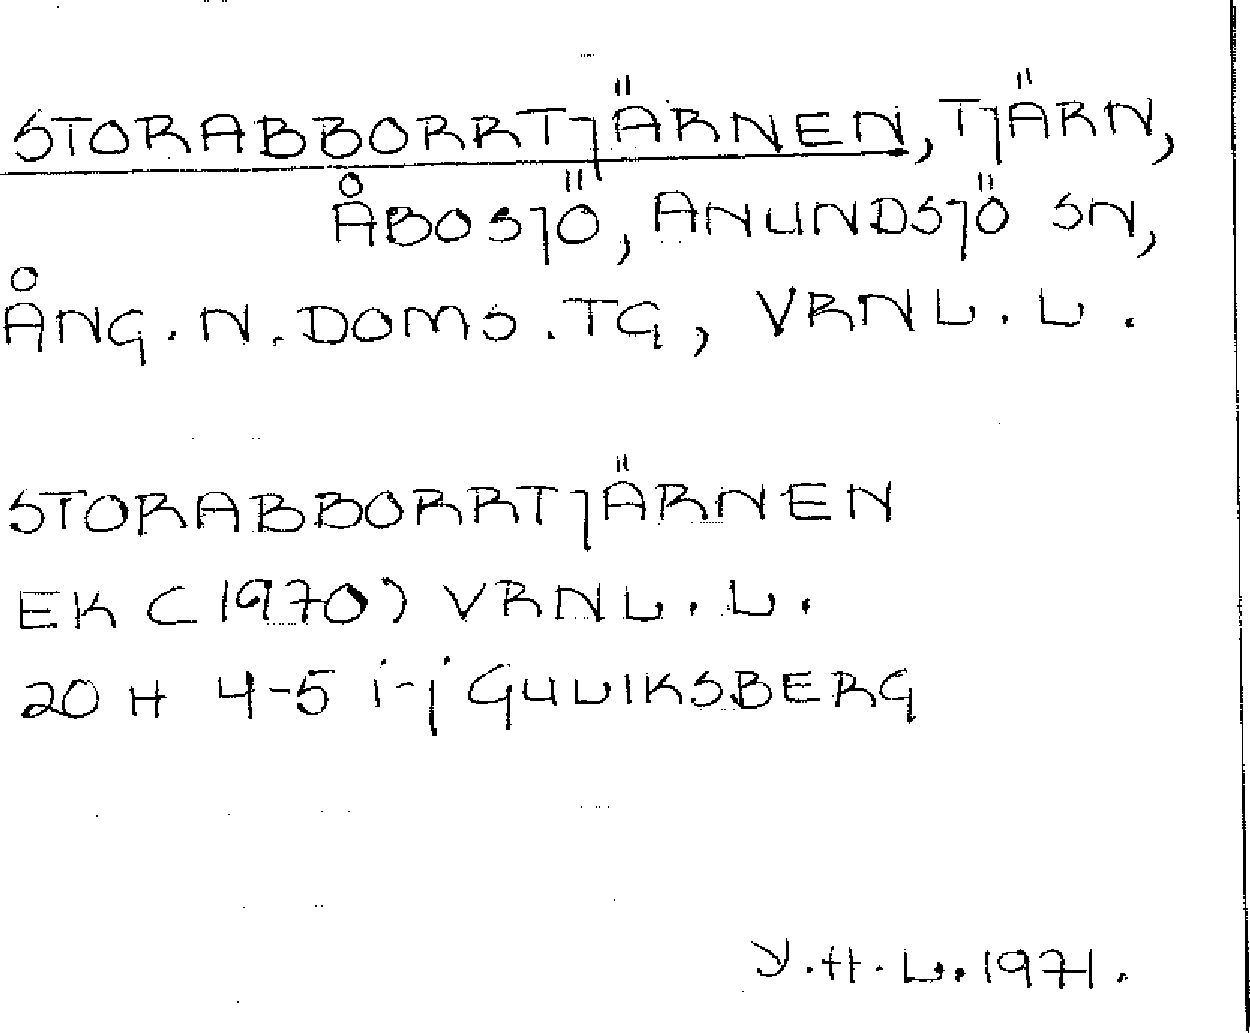 STORABBORRTJÄRNEN, TJÄRN,
ÅBOSJÖ, ANUNDSJÖ SN,
ÅNG. N. DOMS. TG, VRNL. L.
STORABBORRTJÄRNEN
EK (1970) VRNL. L.
20 H 4-5 i-j GULIKSBERG
Y. H. L. 1971.